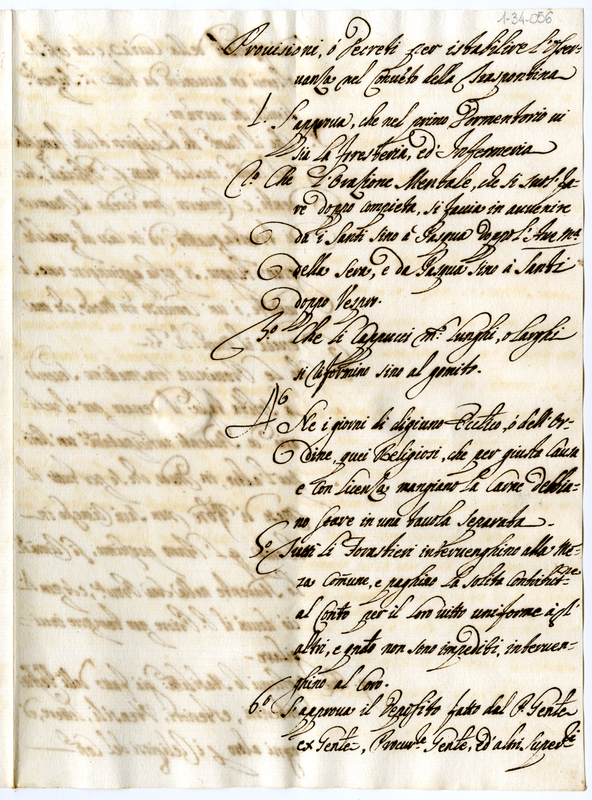 1-34-056
Provisioni, ò Decreti per istabilire l'osser-
vanza nel Convẽto della Traspontina
1. S'approva, che nel primo Dormentorio vi
sia la foresteria, ed' Infermeria
2.º Che l'Orazione Mentale, che si suol fa-
re doppo compieta, si faccia in avvenire
da i Santi sino à Pasqua doppo l'Ave Mª
della Sera, e da Pasqua sino à Santi
doppo Vespro.
3.º Che li Cappucci lunghi, o larghi
si riformino sino al gomito.
4º Ne i giorni di digiuno Eccl.co, ó dell'Or-
dine, quei Religiosi, che per giusta Causa
e con licenza mangiano la Carne debbia-
no stare in una tavola separata.
5.º Tutti li Forastieri intervenghino alla Me-
sa Comũne, e paghino la solita Contribut.ne
al Conto per il loro vitto uniforme à gl'
altri, e qndo non sono impediti, interven-
ghino al Coro.
6.º S'approva il Deposito fatto dal P. Gen̅le
ex Gen̅le, Procur.re Gen̅le, ed' altri Super.ri